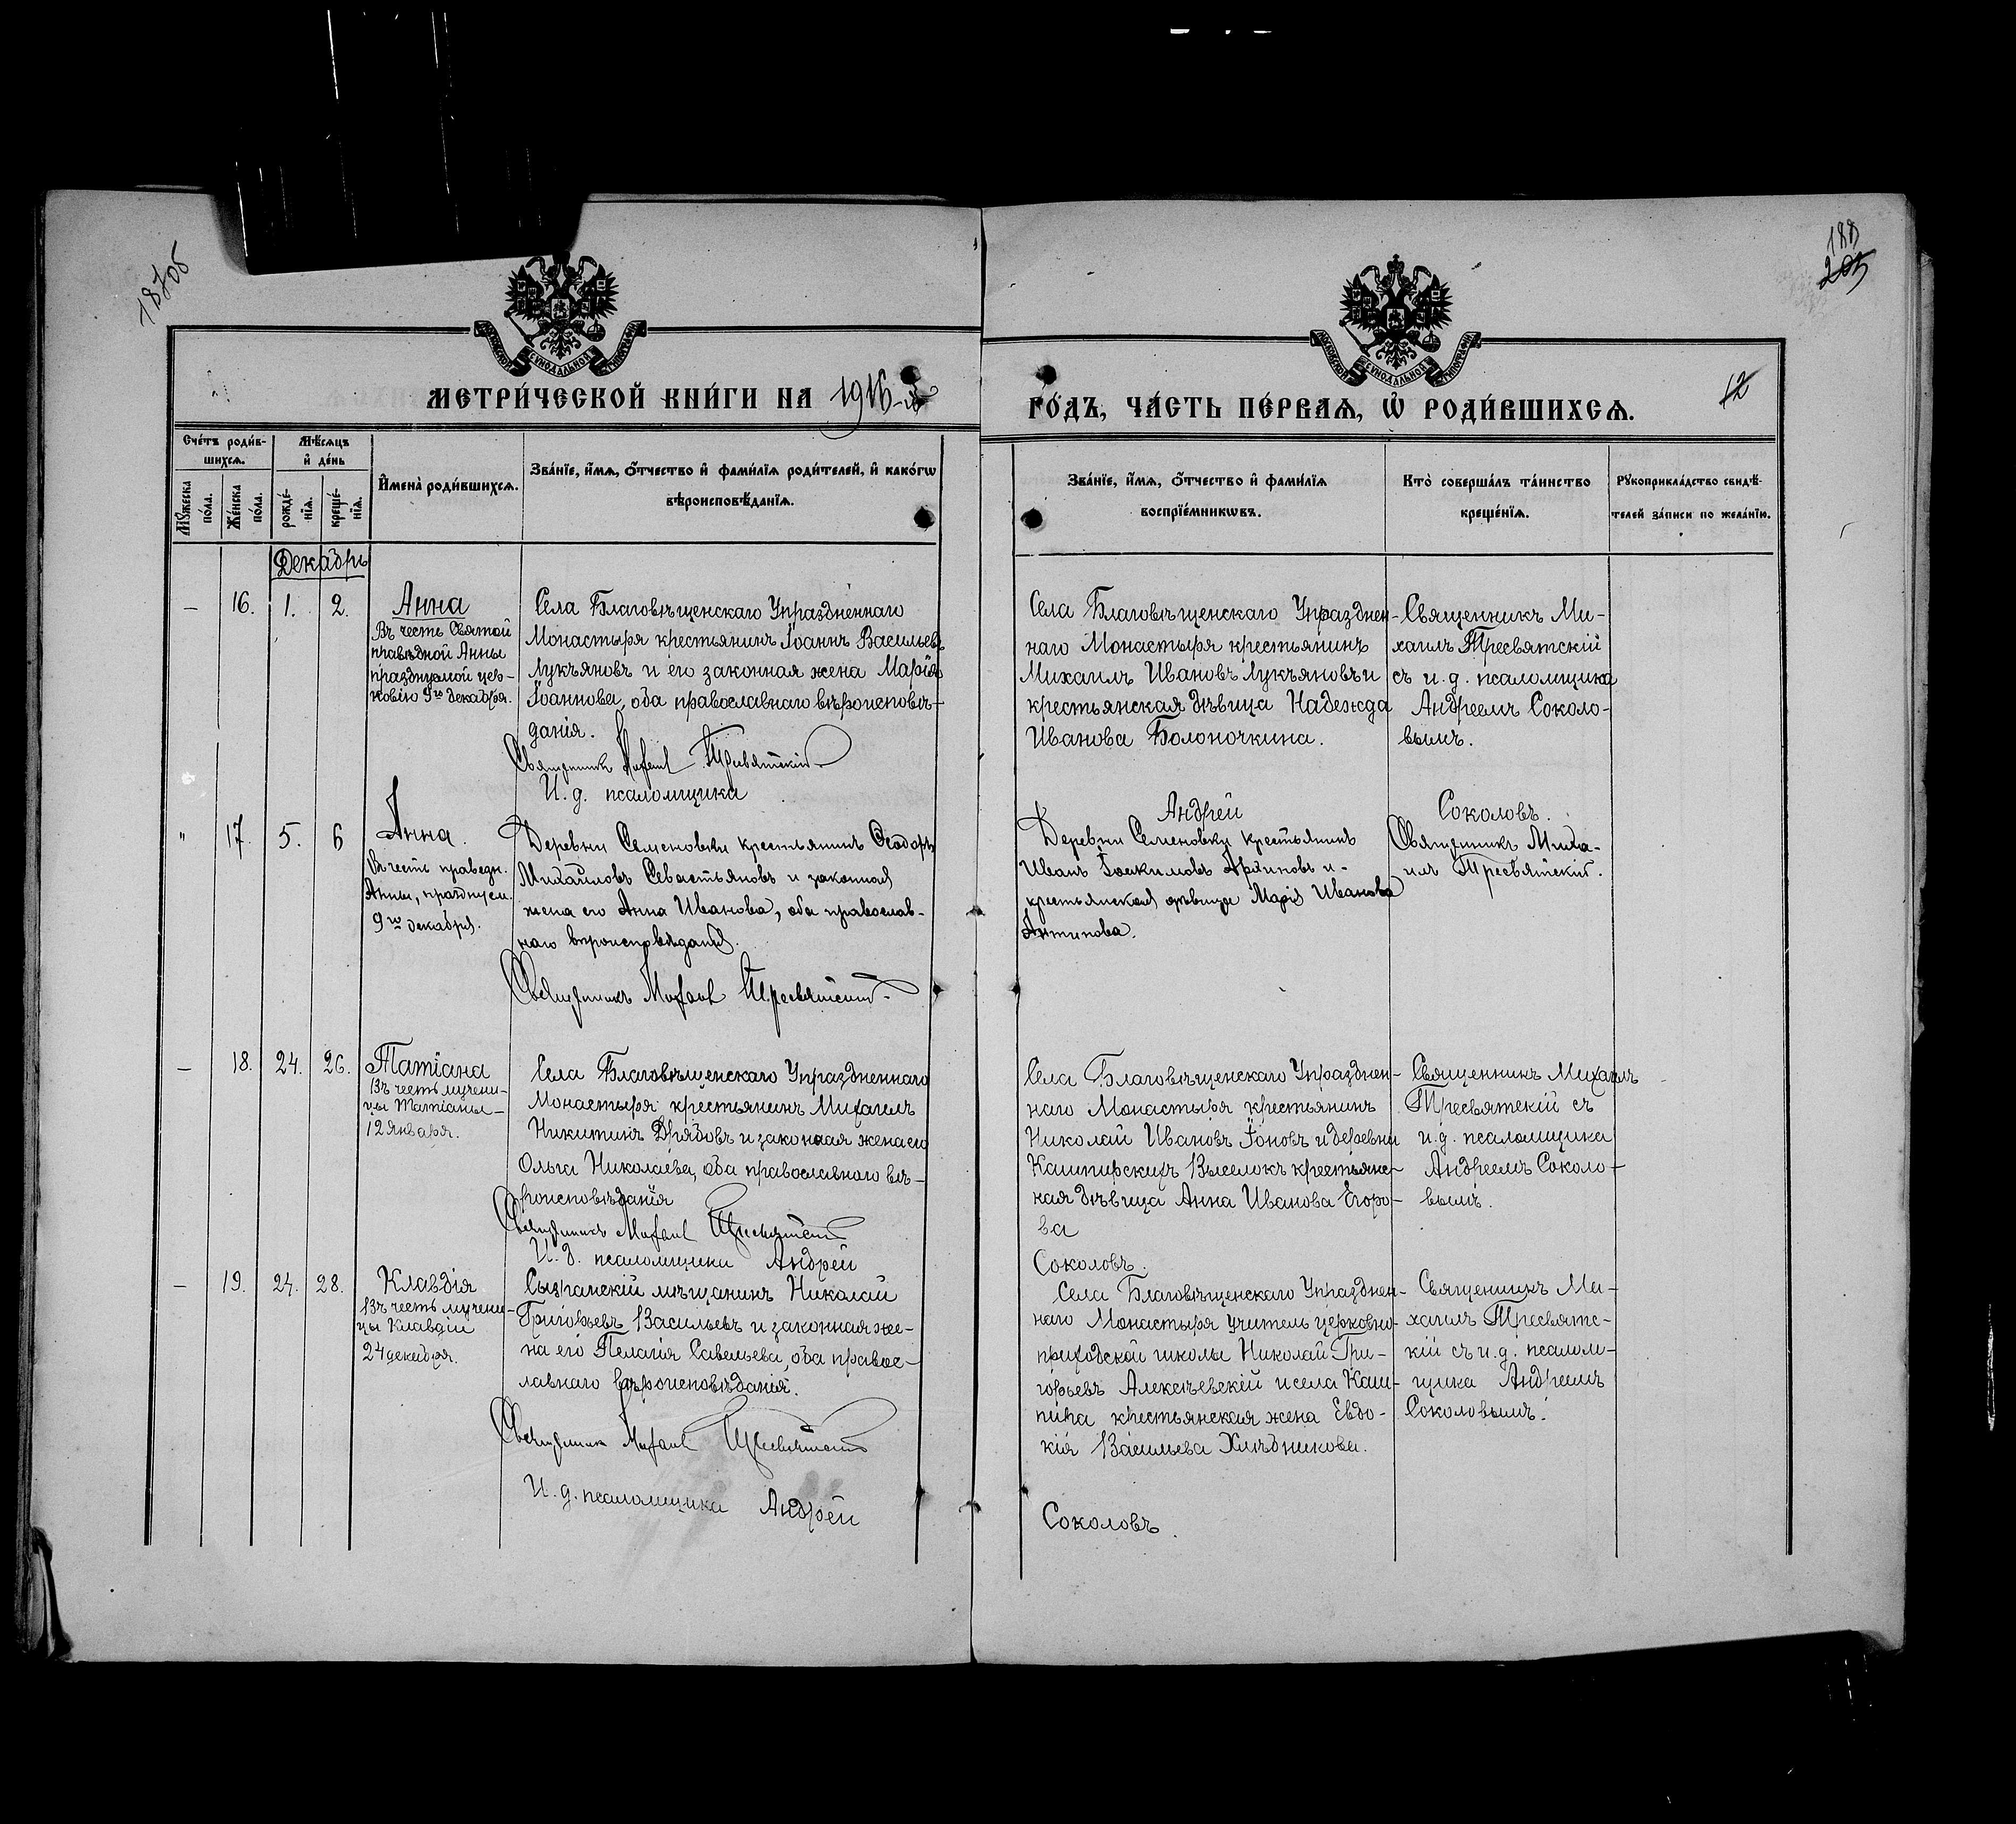 187об
188
205
МОСКОВСКОЙ СУНОДАЛЬНОЙ ТИПОГРАФІИ
МОСКОВСКОЙ СУНОДАЛЬНОЙ ТИПОГРАФІИ
МЕТРИ́ЧЕСКОЙ КНИ́ГИ НА 1916-й
ГО́ДЪ, ЧА́СТЬ ПЕ́РВАѦ, Ѽ РОДИ́ВШИХСѦ.
12
Сче́тъ роди́в-
шихсѧ.
Мѣ́сѧцъ
и҆ де́нь
Мꙋ́жеска по́ла.
Же́нска по́ла.
рожде́-
нїѧ.
креще́-
нїѧ.
И҆мена̀ роди́вшихсѧ.
Зва́нїе, и҆́мѧ, ѻ҆́тчество и҆ фами́лїѧ роди́телей, и҆ како́гѡ
вѣроисповѣ́данїѧ.
Зва́нїе, и҆́мѧ, ѻ҆́тчество и҆ фами́лїѧ
воспрїе́мникѡвъ.
Кто̀ соверша́лъ та́инство
креще́нїѧ.
Рꙋкоприкла́дство свидѣ́-
телей за́писи по жела́нїю.
Декабрь
— 16. 1. 2.
Анна
Въ честь Святой
праведной Анны
празднуемой цер-
ковію 9го декабря.
Села Благовѣщенскаго Упраздненнаго
Монастыря крестьянинъ Іоаннъ Васильевъ
Лукъяновъ и его законная жена Марія
Іоаннова, оба православнаго вѣроисповѣ-
данія.
Священникъ Михаилъ Тресвятскій
И. д. псаломщика
Села Благовѣщенскаго Упразднен-
наго Монастыря крестьянинъ
Михаилъ Ивановъ Лукъяновъ и
крестьянская дѣвица Надежда
Иванова Болоночкина.
Андрей
Священникъ Ми-
хаилъ Тресвятскій
съ и. д. псаломщика
Андреемъ Соколо-
вымъ.
Соколовъ.
" 17. 5. 6
Анна.
Въ честь праведн.
Анны, празднуем.
9го декабря.
Деревни Семеновки крестьянинъ Ѳеодоръ
Михайловъ Севастьяновъ и законная
жена его Анна Иванова, оба православ-
наго вѣроисповѣданія.
Священникъ Михаилъ Тресвятскій.
Деревни Семеновки крестьянинъ
Иванъ Іоакимовъ Архиповъ и-
крестьянская дѣвица Марія Иванова
Антипова.
Священникъ Миха-
илъ Тресвятскій.
— 18. 24. 26.
Татіана
Въ честь мучени-
цы Татіаны-
12 января.
Села Благовѣщенскаго Упраздненнаго
Монастыря крестьянинъ Михаилъ
Никитинъ Дрябовъ и законная жена его
Ольга Николаева, оба православного вѣ-
роисповѣданія
Священникъ Михаилъ Тресвятскій
И. д. псаломщика Андрей
Села Благовѣщенскаго Упразднен-
наго Монастыря крестьянинъ
Николай Ивановъ Іоновъ и деревни
Кашпирскихъ Выселокъ крестьянс-
кая дѣвица Анна Иванова Егоро-
ва
Соколовъ.
Священникъ Михаилъ
Тресвятскій съ
и. д. псаломщика
Андреемъ Соколо-
вымъ.
— 19. 24. 28.
Клавдія
Въ честь мучени-
цы Клавдіи
24 декабря.
Сызранскій мѣщанинъ Николай
Григорьевъ Васильевъ и законная же-
на его Пелагія Савельева, оба правос-
лавнаго вѣроисповѣданія.
Священникъ Михаилъ Тресвятскій
И. д. псаломщика Андрей
Села Благовѣщенскаго Упразднен-
наго Монастыря учитель церковно-
приходской школы Николай Гри-
горьевъ Алексѣевскій и села Каш-
пира крестьянская жена Евдо-
кія Васильева Хлѣбникова.
Соколовъ.
Священникъ Ми-
хаилъ Тресвятс-
кій съ и. д. псалом-
щика Андреемъ
Соколовымъ.